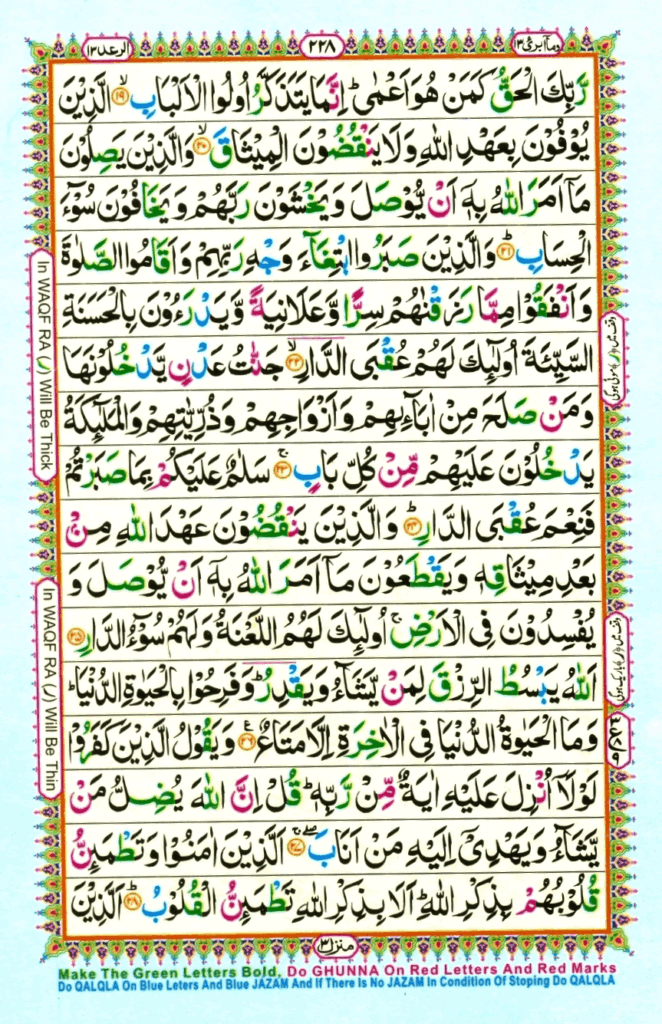 الرعد ١٣
٢٢٨
وما ابرئ ١٣
رَبِّكَ الْحَقُّ كَمَنْ هُوَ اَعْمٰىؕ اِنَّمَا يَتَذَكَّرُ اُولُوا الْاَلْبَابِۙ ﴿۱۹﴾ الَّذِيْنَ
يُوْفُوْنَ بِعَهْدِ اللّٰهِ وَلَا يَنْقُضُوْنَ الْمِيْثَاقَۙ ﴿۲۰﴾ وَالَّذِيْنَ يَصِلُوْنَ
مَاۤ اَمَرَ اللّٰهُ بِهٖۤ اَنْ يُّوْصَلَ وَيَخْشَوْنَ رَبَّهُمْ وَيَخَافُوْنَ سُوْٓءَ
الْحِسَابِؕ ﴿۲۱﴾ وَالَّذِيْنَ صَبَرُوا ابْتِغَآءَ وَجْهِ رَبِّهِمْ وَاَقَامُوا الصَّلٰوةَ
وَاَنْفَقُوْا مِمَّا رَزَقْنٰهُمْ سِرًّا وَّعَلَانِيَةً وَّيَدْرَءُوْنَ بِالْحَسَنَةِ
السَّيِّئَةَ اُولٰٓئِكَ لَهُمْ عُقْبَى الدَّارِۙ ﴿۲۲﴾ جَنّٰتُ عَدْنٍ يَّدْخُلُوْنَهَا
وَمَنْ صَلَحَ مِنْ اٰبَآئِهِمْ وَاَزْوَاجِهِمْ وَذُرِّيّٰتِهِمْ وَالْمَلٰٓئِكَةُ
يَدْخُلُوْنَ عَلَيْهِمْ مِّنْ كُلِّ بَابٍۚ ﴿۲۳﴾ سَلٰمٌ عَلَيْكُمْ بِمَا صَبَرْتُمْ
فَنِعْمَ عُقْبَى الدَّارِؕ ﴿۲۴﴾ وَالَّذِيْنَ يَنْقُضُوْنَ عَهْدَ اللّٰهِ مِنْۢ
بَعْدِ مِيْثَاقِهٖ وَيَقْطَعُوْنَ مَاۤ اَمَرَ اللّٰهُ بِهٖۤ اَنْ يُّوْصَلَ وَ
يُفْسِدُوْنَ فِى الْاَرْضِۙ اُولٰٓئِكَ لَهُمُ اللَّعْنَةُ وَلَهُمْ سُوْٓءُ الدَّارِ ﴿۲۵﴾
اَللّٰهُ يَبْسُطُ الرِّزْقَ لِمَنْ يَّشَآءُ وَيَقْدِرُؕ وَفَرِحُوْا بِالْحَيٰوةِ الدُّنْيَاؕ
وَمَا الْحَيٰوةُ الدُّنْيَا فِى الْاٰخِرَةِ اِلَّا مَتَاعٌ ﴿۲۶﴾ وَيَقُوْلُ الَّذِيْنَ كَفَرُوْا
لَوْلَاۤ اُنْزِلَ عَلَيْهِ اٰيَةٌ مِّنْ رَّبِّهٖؕ قُلْ اِنَّ اللّٰهَ يُضِلُّ مَنْ
يَّشَآءُ وَيَهْدِىْۤ اِلَيْهِ مَنْ اَنَابَۖۚ ﴿۲۷﴾ اَلَّذِيْنَ اٰمَنُوْا وَتَطْمَئِنُّ
قُلُوْبُهُمْ بِذِكْرِ اللّٰهِؕ اَلَا بِذِكْرِ اللّٰهِ تَطْمَئِنُّ الْقُلُوْبُؕ ﴿۲۸﴾ اَلَّذِيْنَ
منزل ٣
In WAQF RA (ر) Will Be Thick
In WAQF RA (ر) Will Be Thin
Make The Green Letters Bold, Do GHUNNA On Red Letters And Red Marks
Do QALQLA On Blue Leters And Blue JAZAM And If There Is No JAZAM In Condition Of Stoping Do QALQLA